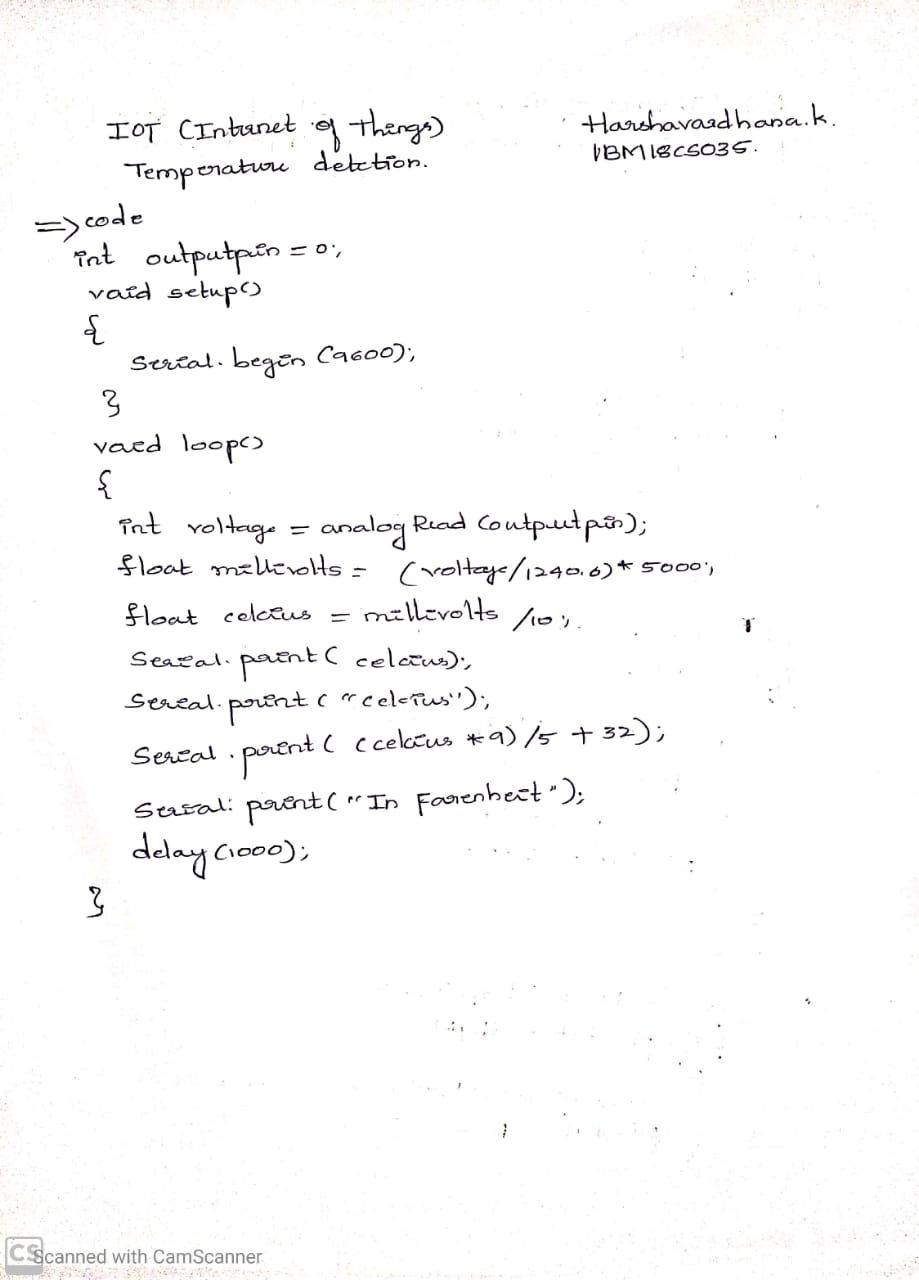 IOT (Internet of things)
Harshavardhana.k.
1BM18CS035.
Temperature detction.
=> code
int outputpin = 0;
void setup()
{
Serial.begin (9600);
}
void loop()
{
int voltage = analog Read (outputpin);
float millivolts = (voltage/1240.6)* 5000;
float celcius = millivolts /10;
Serial.print( celcius);
Serial.print ("celcius");
Serial.print ( (celcius *9) /5 + 32);
Serial: print("In Farenheit");
delay (1000);
}
CS Scanned with CamScanner